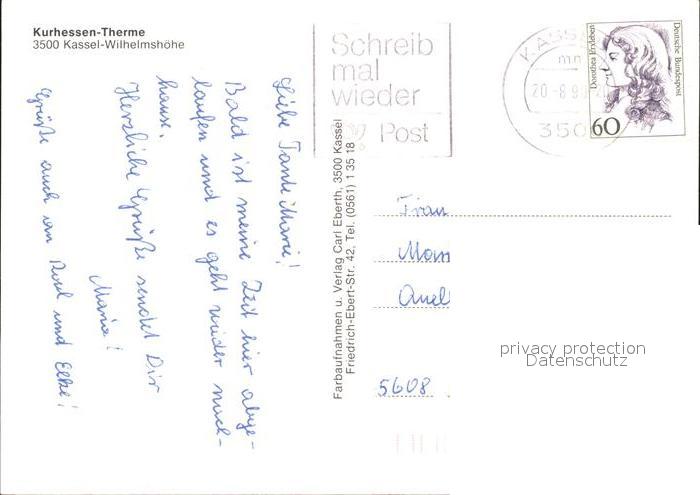 Kurhessen-Therme
3500 Kassel-Wilhelmshöhe
Schreib
mal
wieder
Post
KASSEL
mn
20.-8.9
350
Deutsche Bundespost
Dorothea Erxleben
60
Liebe Tante Marie!
Bald ist meine Zeit hier abge-
laufen und es geht wieder nach-
hause.
Herzliche Grüße sendet Dir
Maria!
Grüße auch an Paul und Elke!
Farbaufnahmen u. Verlag Carl Eberth, 3500 Kassel
Friedrich-Ebert-Str. 42, Tel. (0561) 1 35 18
Frau
5608
privacy protection
Datenschutz